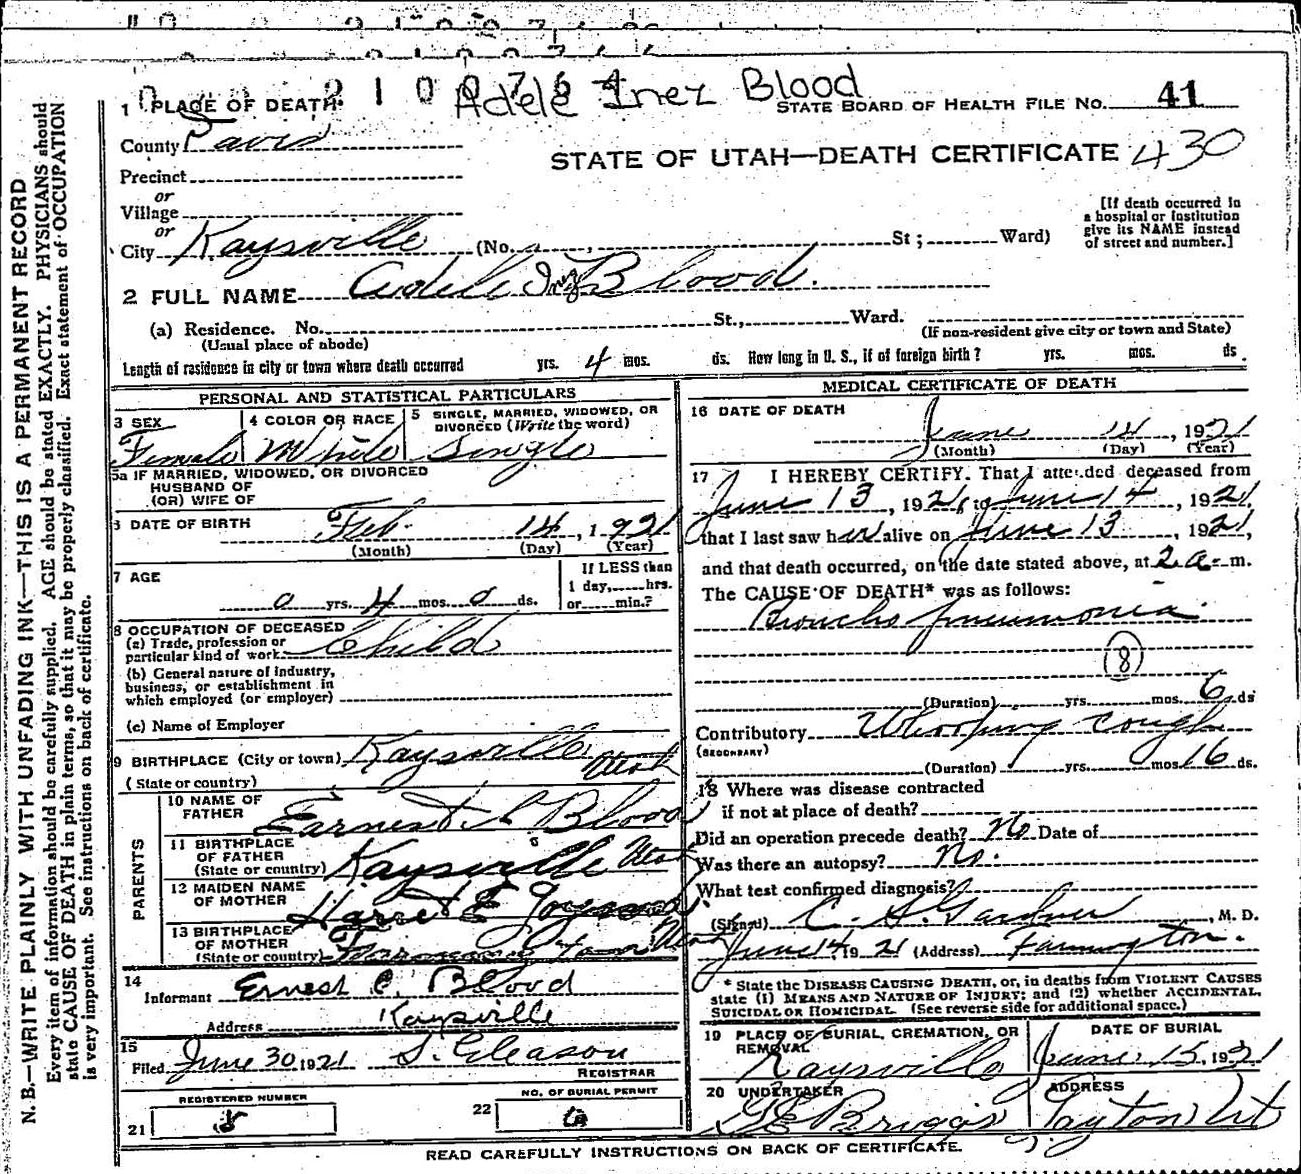 2 1 0 0 7 6 4
Adele Inez Blood
1 PLACE OF DEATH
STATE BOARD OF HEALTH FILE No. 41
County Davis
STATE OF UTAH—DEATH CERTIFICATE 430
Precinct
or
Village
or
City Kaysville (No. , St ; Ward)
[If death occurred in a hospital or institution give its NAME instead of street and number.]
2 FULL NAME Adele Inez Blood.
(a) Residence. No. St., Ward.
(Usual place of abode) (If non-resident give city or town and State)
Length of residence in city or town where death occurred yrs. 4 mos. ds. How long in U. S., if of foreign birth? yrs. mos. ds.
PERSONAL AND STATISTICAL PARTICULARS
3 SEX 4 COLOR OR RACE 5 SINGLE, MARRIED, WIDOWED, OR DIVORCED (Write the word)
Female White Single
5a IF MARRIED, WIDOWED, OR DIVORCED
HUSBAND OF
(OR) WIFE OF
6 DATE OF BIRTH Feb. 14, 1921
(Month) (Day) (Year)
7 AGE If LESS than
1 day, hrs.
0 yrs. 4 mos. 0 ds. or min.?
8 OCCUPATION OF DECEASED
(a) Trade, profession or
particular kind of work Child
(b) General nature of industry,
business, or establishment in
which employed (or employer)
(c) Name of Employer
9 BIRTHPLACE (City or town) Kaysville Utah
(State or country)
PARENTS
10 NAME OF
FATHER Earnest C Blood
11 BIRTHPLACE
OF FATHER
(State or country) Kaysville Utah
12 MAIDEN NAME
OF MOTHER Harret E
13 BIRTHPLACE
OF MOTHER
(State or country) Utah
14 Informant Ernest C. Blood
Address Kaysville
15 Filed June 30 1921 S. Gleason
REGISTRAR
REGISTERED NUMBER
NO. OF BURIAL PERMIT
21 22
MEDICAL CERTIFICATE OF DEATH
16 DATE OF DEATH
June 14, 1921
(Month) (Day) (Year)
17 I HEREBY CERTIFY. That I attended deceased from
June 13, 1921, to June 14, 1921,
that I last saw her alive on June 13, 1921,
and that death occurred, on the date stated above, at 2 a. m.
The CAUSE OF DEATH* was as follows:
Broncho pneumonia.
(8)
(Duration) yrs. mos. 6 ds
Contributory Whooping cough
(SECONDARY)
(Duration) yrs. mos. 16 ds.
18 Where was disease contracted
if not at place of death?
Did an operation precede death? No Date of
Was there an autopsy? No.
What test confirmed diagnosis?
(Signed) C. A. Gardner, M. D.
June 14 1921 (Address) Farmington.
* State the DISEASE CAUSING DEATH, or, in deaths from VIOLENT CAUSES
state (1) MEANS AND NATURE OF INJURY; and (2) whether ACCIDENTAL,
SUICIDAL OR HOMICIDAL. (See reverse side for additional space.)
19 PLACE OF BURIAL, CREMATION, OR REMOVAL DATE OF BURIAL
Kaysville June 15, 1921
20 UNDERTAKER ADDRESS
G E Briggs Layton, Ut
READ CAREFULLY INSTRUCTIONS ON BACK OF CERTIFICATE.
N. B.—WRITE PLAINLY WITH UNFADING INK—THIS IS A PERMANENT RECORD
Every item of information should be carefully supplied. AGE should be stated EXACTLY. PHYSICIANS should
state CAUSE OF DEATH in plain terms, so that it may be properly classified. Exact statement of OCCUPATION
is very important. See instructions on back of certificate.